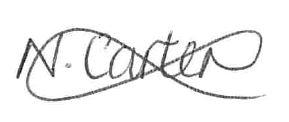 N. Carter